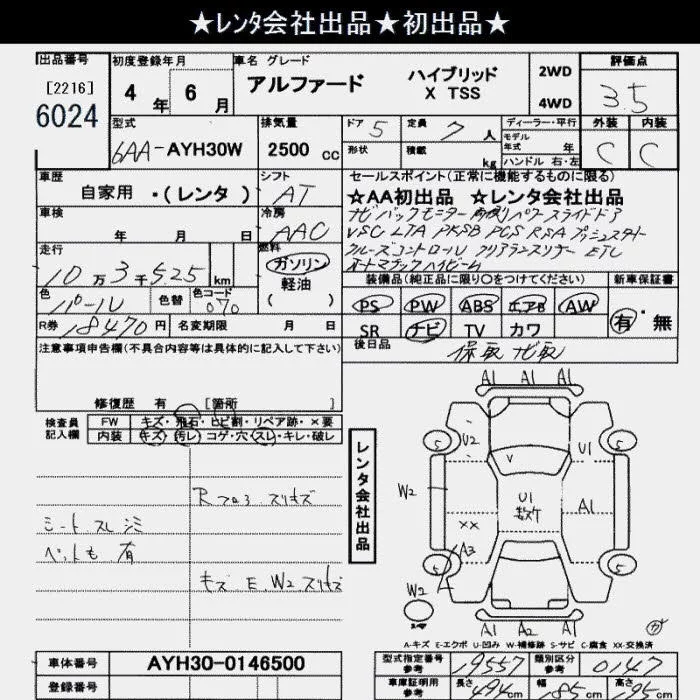 ★レンタ会社出品★初出品★
出品番号
[2216]
6024
初度登録年月
4年6月
車名 グレード
アルファード
ハイブリッド
X TSS
2WD
4WD
評価点
3.5
型式
6AA-AYH30W
排気量
2500 cc
ドア 5
定員 7人
形状
積載 kg
ディーラー・平行
モデル
年式 年
ハンドル 右・左
外装
C
内装
C
車歴
自家用 ・(レンタ)
シフト
AT
車検
年 月 日
冷房
AAC
走行
10万3千525 km
燃料
ガソリン
軽油
( )
色
パール
色替
色コード
070
R券 18470円
名変期限 月 日
セールスポイント(正常に機能するものに限る)
★AA初出品 ★レンタ会社出品
ナビ バックモニター 両側パワースライドドア
VSC LTA PKSB PCS RSA プッシュスタート
クルーズコントロール クリアランスソナー ETC
オートマチックハイビーム
装備品(純正品に限り〇をつけてください)
新車保証書
PS PW ABS エアB AW
SR ナビ TV カワ
有・無
後日品
保取 ナビ取
注意事項申告欄(不具合内容等は具体的に記入して下さい)
修復歴 有 [箇所 ]
検査員
記入欄
FW キズ・飛石・ヒビ割・リペア跡・×要
内装 キズ・汚レ・コゲ・穴・スレ・キレ・破レ
シート スレ シミ
ペットも 有
キズ E、W2 スリキズ
レンタ会社出品
A1 A1 A1
5
5
U2
V
U1
W2
U1
数ケ
A1
XX
A3
5
5
W2
A1 A2 A1
A-キズ E-エクボ U-凹み W-補修跡 S-サビ C-腐食 XX-交換済
車体番号
AYH30-0146500
登録番号
型式指定番号
参考
19557
類別区分
参考
0147
車庫証明用
参考
長さ
494cm
幅
185cm
高さ
195cm